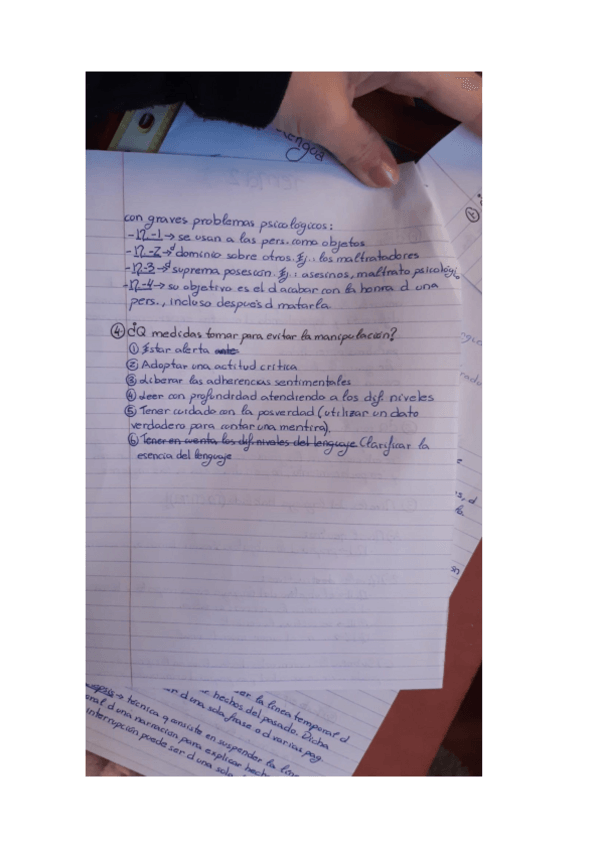 Lengua
con graves problemas psicológicos:
-N.-1 → se usan a las pers. como objetos
-N.-2 → d dominio sobre otros. Ej.: los maltratadores
-N-3 → d suprema posesión. Ej: asesinos, maltrato psicológi.
-N-4 → su objetivo es el d acabar con la honra d una
pers., incluso después d matarla.
④ ¿Q medidas tomar para evitar la manipulación?
① Estar alerta ante
② Adoptar una actitud crítica
③ Liberar las adherencias sentimentales
④ Leer con profundidad atendiendo a los dif. niveles
⑤ Tener cuidado con la posverdad (utilizar un dato
verdadero para contar una mentira).
⑥ Tener en cuenta los dif. niveles del lenguaje Clarificar la
esencia del lenguaje
la línea temporal d
hechos del pasado. Dicha
d una sola frase o d varias pag.
→ técnica q consiste en suspender la
d una narración para explicar
interrupción puede ser d una